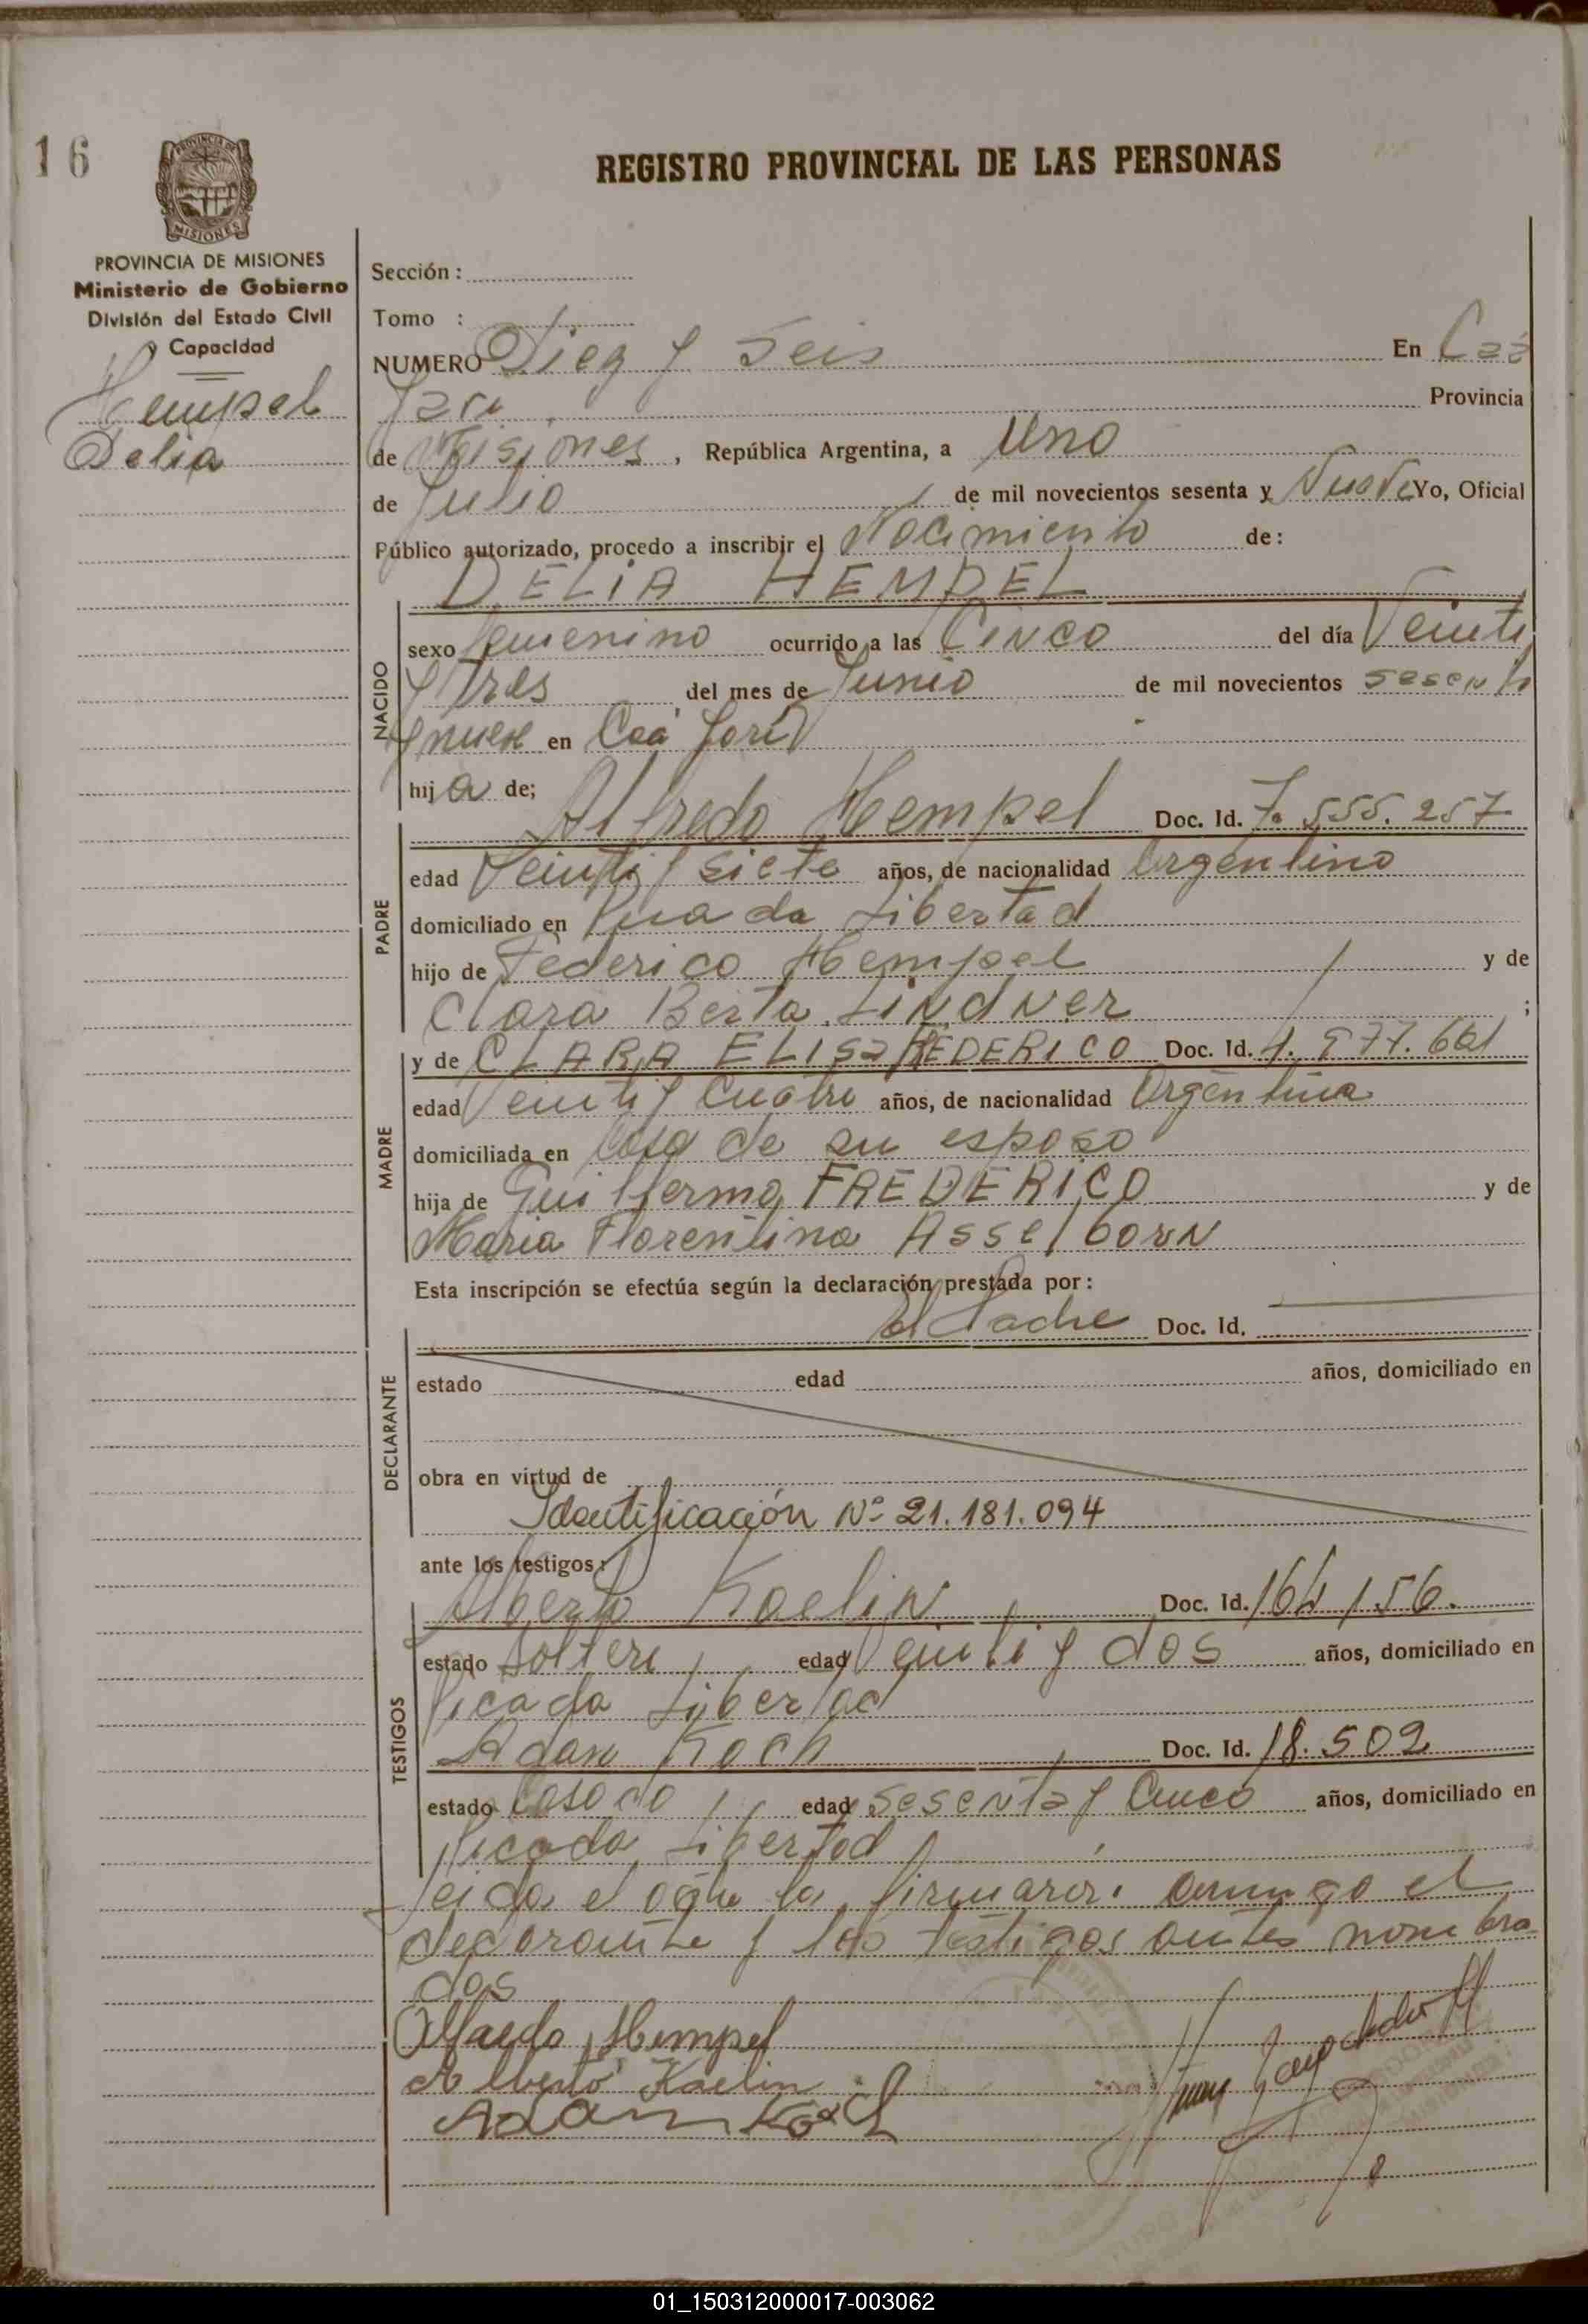 16
PROVINCIA DE MISIONES
Ministerio de Gobierno
División del Estado Civil
y Capacidad
Hempel
Delia
REGISTRO PROVINCIAL DE LAS PERSONAS
Sección :
Tomo :
NUMERO Diez y Seis En Caá
Yari Provincia
de Misiones , República Argentina, a Uno
de Julio de mil novecientos sesenta y Nueve Yo, Oficial
Público autorizado, procedo a inscribir el Nacimiento de:
DELIA HEMPEL
NACIDO
sexo Femenino ocurrido a las Cinco del día Veinti
y Tres del mes de Junio de mil novecientos sesenta
y nueve en Caá Yarí
hija de;
PADRE
Alfredo Hempel Doc. Id. 7.555.257
edad Veinti y siete años, de nacionalidad Argentino
domiciliado en Picada Libertad
hijo de Federico Hempel y de
Clara Berta Lindner ;
MADRE
y de CLARA ELISA FREDERICO Doc. Id. 4.977.601
edad Veinti y Cuatro años, de nacionalidad Argentina
domiciliada en Casa de su esposo
hija de Guillermo FREDERICO y de
Maria Florentina Asselborn
Esta inscripción se efectúa según la declaración prestada por:
el Padre Doc. Id.
DECLARANTE
estado edad años, domiciliado en
obra en virtud de
Identificación Nº 21.181.094
ante los testigos:
TESTIGOS
Alberto Kaelin Doc. Id. 164156.
estado Soltero edad Veinti y dos años, domiciliado en
Picada Libertad
Adan Koch Doc. Id. 18.502
estado Casado edad Sesenta y Cinco años, domiciliado en
Picada Libertad
Leida el acta la firmaron conmigo el
declarante y los testigos antes nombra
dos
Alfredo Hempel
Alberto Kaelin
Adam Koch
01_150312000017-003062